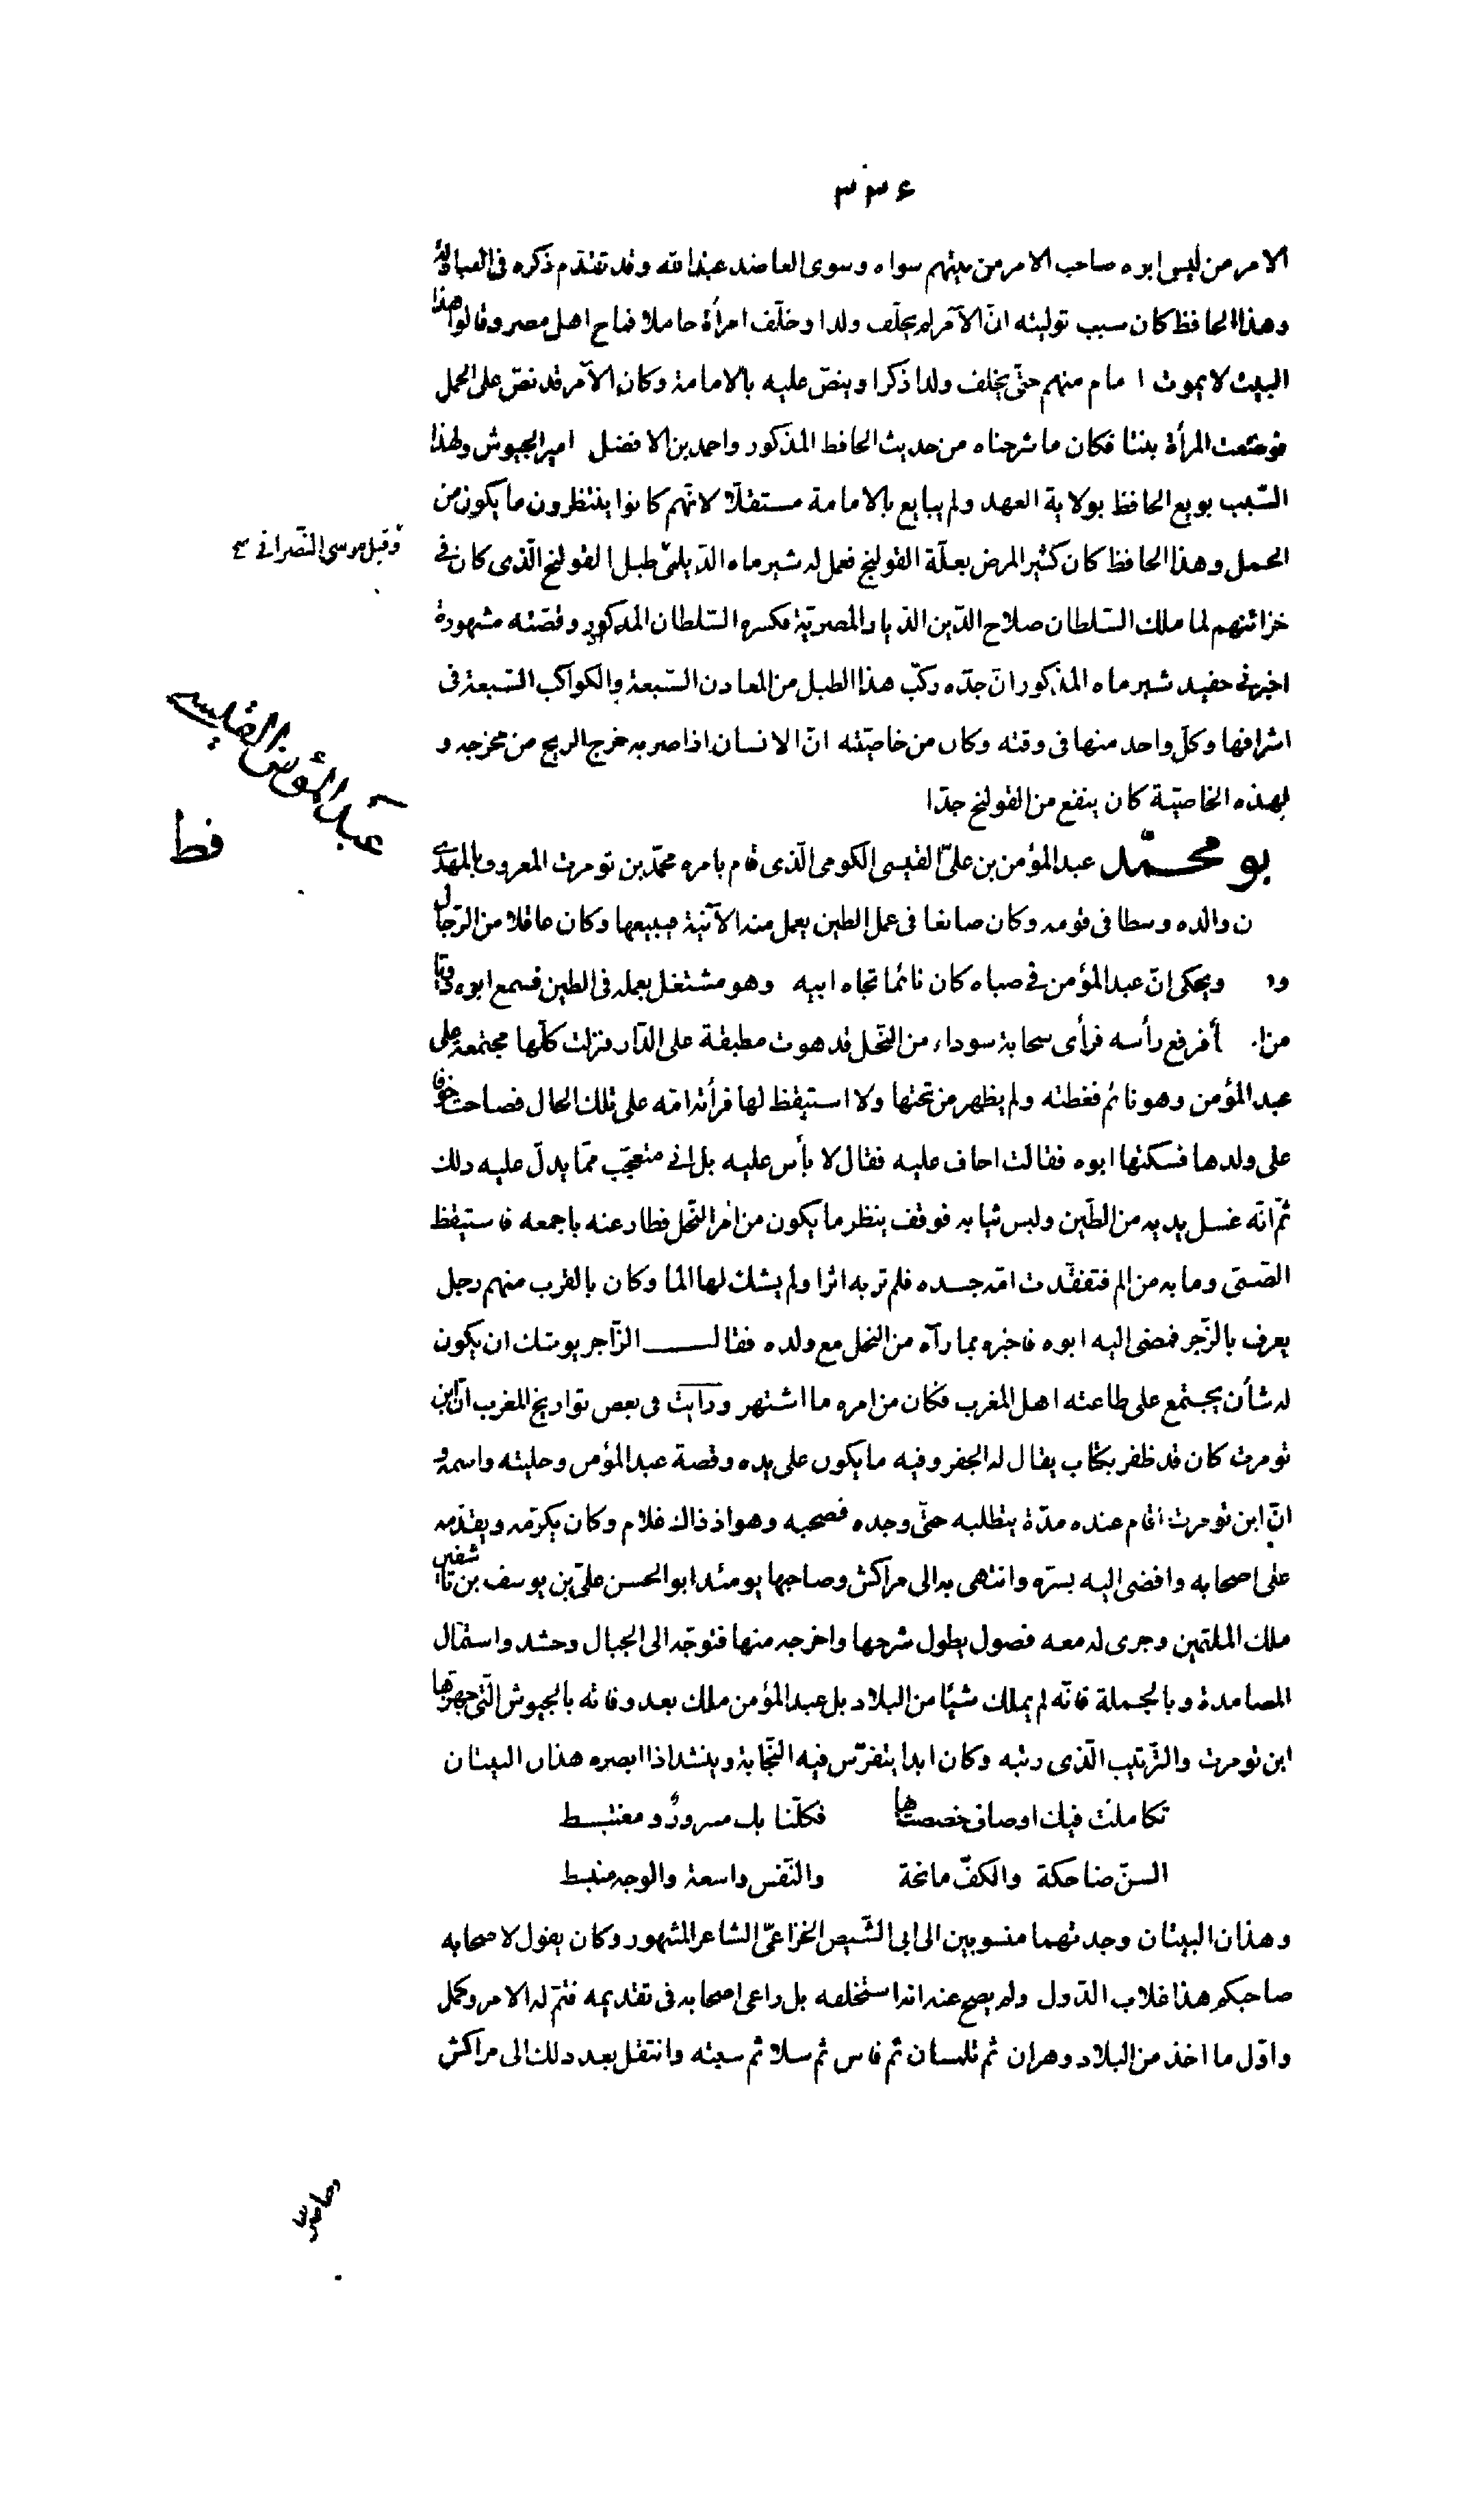 ٣٣٤
الامر من ليس ابوه صاحب الامر من بيتهم سواه وسوى العاضد عبد الله وقد تقدّم ذكره فى العبادلة
وهذا الحافظ كان سبب توليته انّ الآمر لم يخلّف ولدا وخلّف امرأة حاملا فماج اهل مصر وقالوا هذا
البيت لا يموت امام منهم حتّى يخلف ولدا ذكرا وينصّ عليه بالامامة وكان الآمر قد نصّ على الحمل
فوضعت المرأة بنتا فكان ما شرحناه من حديث الحافظ المذكور واحمد بن الافضل امير الجيوش ولهذا
السّبب بويع الحافظ بولاية العهد ولم يبايع بالامامة مستقلّا لانّهم كانوا ينتظرون ما يكون من
الحمل وهذا الحافظ كان كثير المرض بعلّة القولنج فعمل له شيرماه الدّيلمىّ طبل القولنج الّذى كان فى
وقيل موسى النّصرانى
خزائنهم لما ملك السّلطان صلاح الدّين الديار المصريّة فكسره السّلطان المذكور وقصّته مشهورة
اخبرنى حفيد شيرماه المذكور انّ جدّه ركّب هذا الطبل من المعادن السّبعة والكواكب السّبعة فى
اشرافها وكلّ واحد منها فى وقته وكان من خاصّيّته انّ الانسان اذا ضربه خرج الريح من مخرجه و
لهذه الخاصيّة كان ينفع من القولنج جدّا
عبد المؤمن القيسى
بو محمّد عبد المؤمن بن علىّ القيسى الكومى الّذى قام بامره محمّد بن تومرت المعروف بالمهدى
ن والده وسطا فى قومه وكان صانعا فى عمل الطين يعمل منه الآنية فيبيعها وكان عاقلا من الرّجال
وق ويحكى انّ عبد المؤمن فى صباه كان نائما تجاه ابيه وهو مشتغل بعمله فى الطين فسمع ابوه دويّا
من ا أ فرفع رأسه فرأى سحابة سوداء من النّحل قد هوت مطبقة على الدّار فنزلت كلّها مجتمعة على
عبد المؤمن وهو نائم فغطته ولم يظهر من تحتها ولا استيقظ لها فرأته امّه على تلك الحال فصاحت خوفا
على ولدها فسكتها ابوه فقالت اخاف عليه فقال لا بأس عليه بل انى متعجّب ممّا يدلّ عليه ذلك
ثمّ انّه غسل يديه من الطّين ولبس ثيابه فوقف ينظر ما يكون من امر النّحل فطار عنه باجمعه فاستيقظ
الصّبىّ وما به من الم فتفقّدت امّه جسده فلم تر به اثرا ولم يشك لها الما وكان بالقرب منهم رجل
يعرف بالزّجر فمضى اليه ابوه فاخبره بما رآه من النحل مع ولده فقال الزّاجر يوشك ان يكون
له شأن يجتمع على طاعته اهل المغرب فكان من امره ما اشتهر ورايت فى بعض تواريخ المغرب انّ ابن
تومرت كان قد ظفر بكتاب يقال له الجفر وفيه ما يكون على يده وقصة عبد المؤمن وحليته واسمه و
انّ ابن تومرت اقام عنده مدّة يتطلبه حتّى وجده فصحبه وهو اذ ذاك غلام وكان يكرمه ويقدّمه
على اصحابه وافضى اليه بسرّه وانتهى به الى مراكش وصاحبها يومئذ ابو الحسن علىّ بن يوسف بن تاشفين
ملك الملثمين وجرى له معه فصول يطول شرحها واخرجه منها فتوجّه الى الجبال وحشد واستمال
المصامدة وبالجملة فانّه لم يملك شيئا من البلاد بل عبد المؤمن ملك بعد وفاته بالجيوش الّتى جهّزها
ابن تومرت والتّرتيب الّذى رتبه وكان ابدا يتفرّس فيه النّجابة وينشد اذا ابصره هذان البيتان
تكاملت فيك اوصاف خصصت بها فكلّنا بك مسرور و مغتبط
السنّ ضاحكة والكفّ مانحة والنّفس واسعة والوجه منبسط
وهذان البيتان وجدتهما منسوبين الى ابى الشّيص الخزاعىّ الشاعر المشهور وكان يقول لاصحابه
صاحبكم هذا غلاب الدّول ولم يصح عنه انه استخلفه بل راعى اصحابه فى تقديمه فتمّ له الامر وكمل
واوّل ما اخذ من البلاد وهران ثم تلمسان ثم فاس ثم سلا ثم سبته وانتقل بعد ذلك الى مراكش
وحاصرها